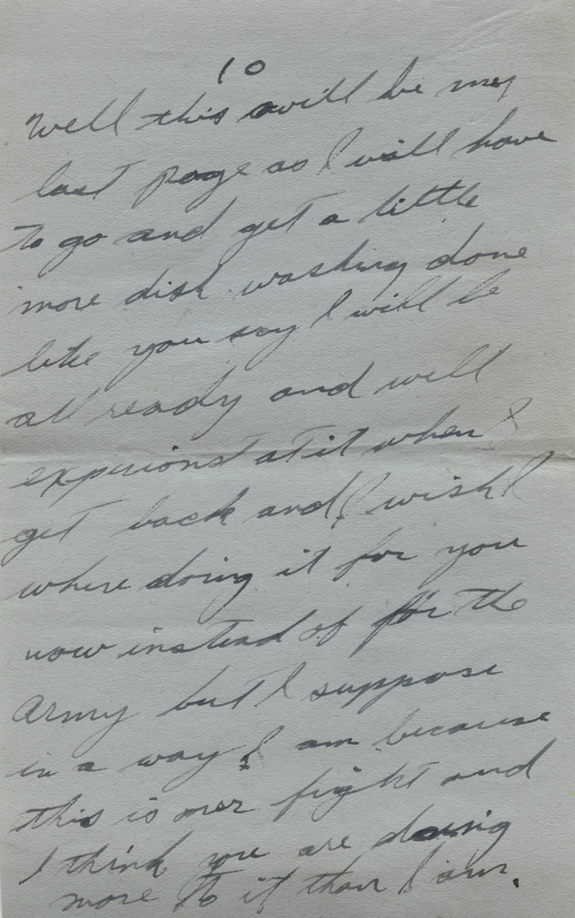 10
Well this will be my
last page as I will have
to go and get a little
more dish washing done
like you say I will be
all ready and well
experionst at it when I
get back and I wish I
where doing it for you
now instead of for the
Army but I suppose
in a way I am because
this is our fight and
I think you are doing
more to it than I am.